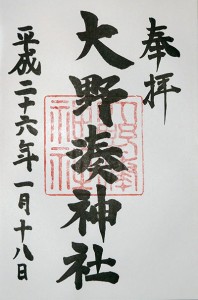 奉拝
大野湊神社
平成二十六年一月十八日